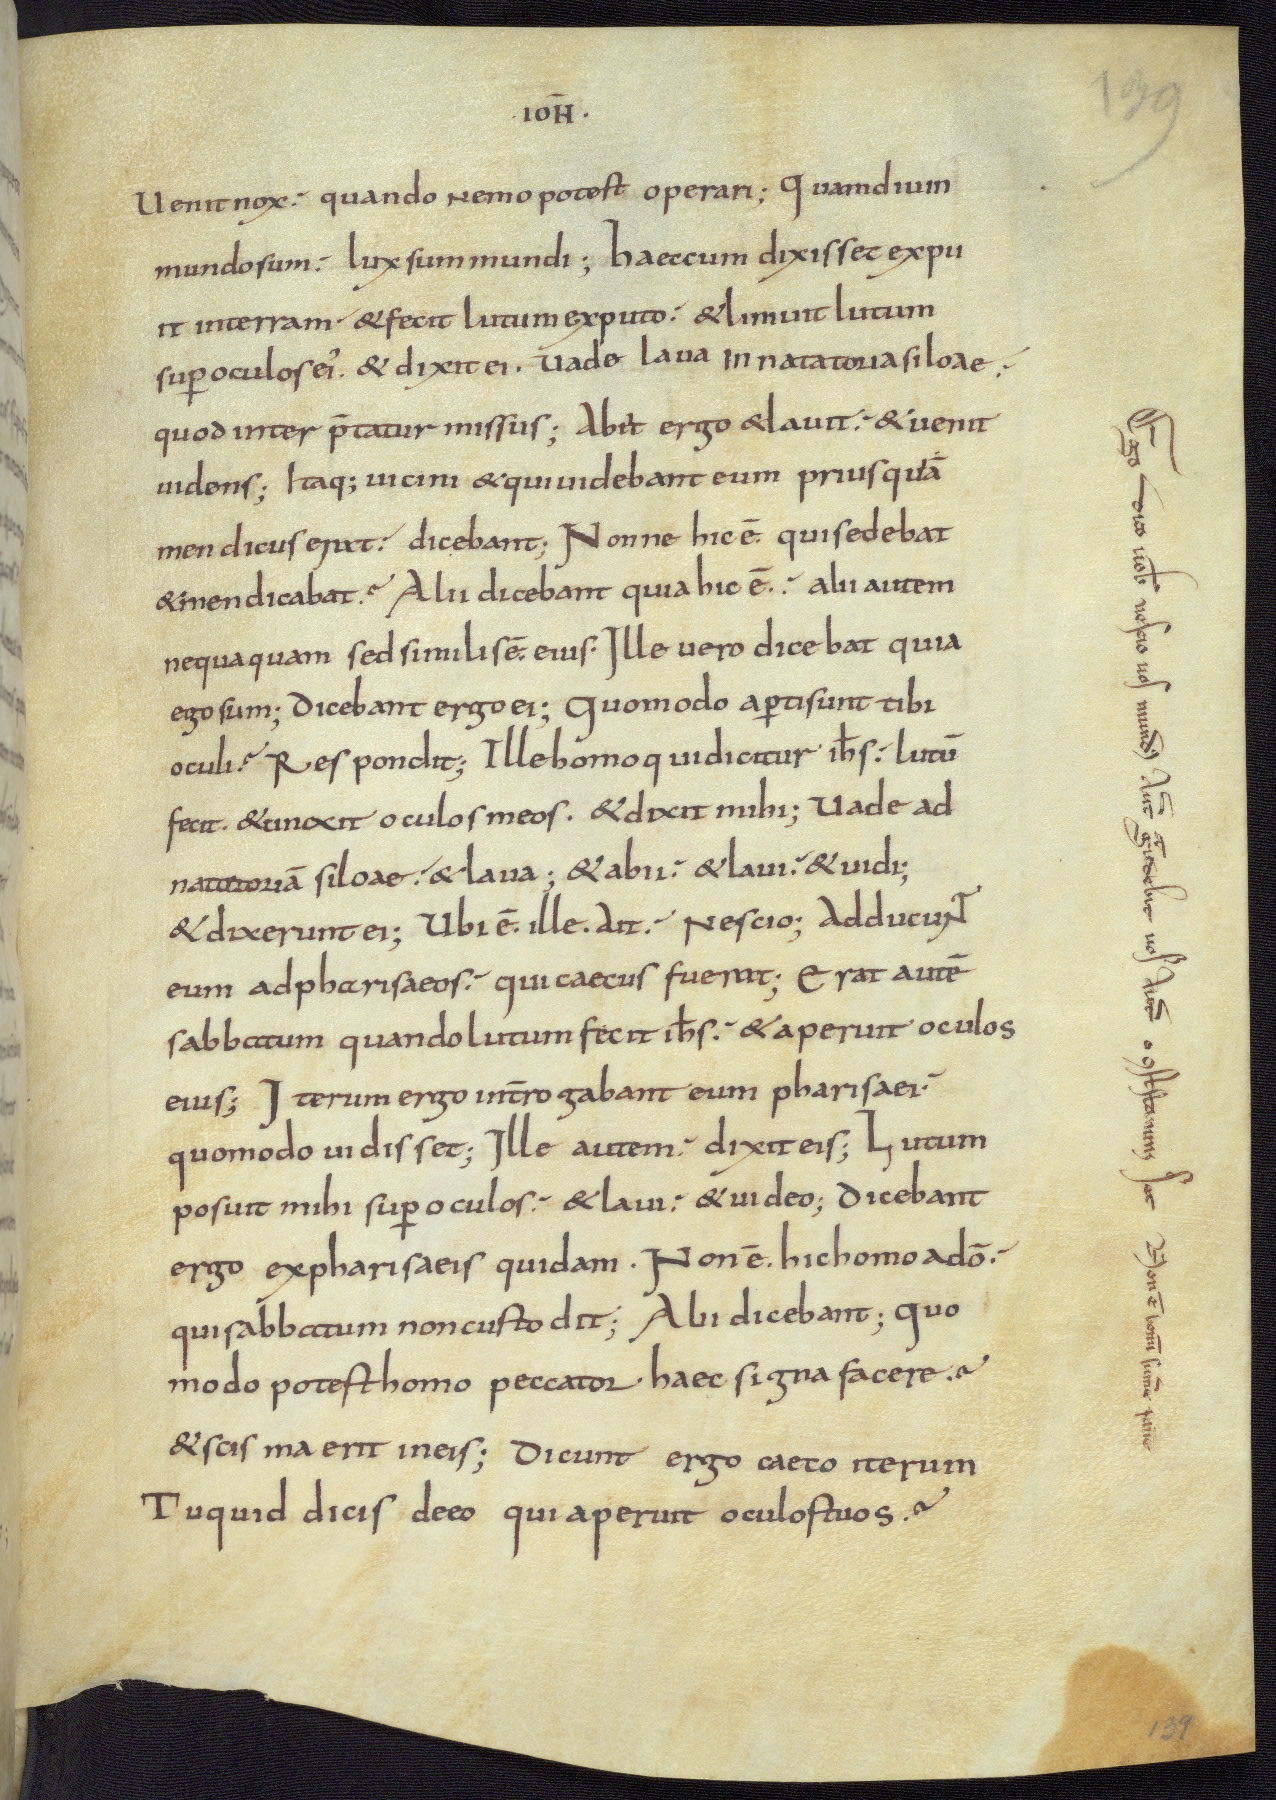 ·IOH̄·
139
Uenit nox. quando nemo potest operari; Quamdium
mundo sum. lux sum mundi; haec cum dixisset expu
it in terram. & fecit lutum ex puto. & linuit lutum
sup oculos ei'. & dixit ei. Uade laua in natatoria siloae.
quod inter p̄tatur missus; Abiit ergo & lauit. & uenit
uidens; Itaq; uicini & qui uidebant eum prius quā
mendicus erat. dicebant; Nonne hic ē. qui sedebat
& mendicabat. Alii dicebant quia hic ē. alii autem
nequaquam sed similis ē. eius. Ille uero dicebat quia
ego sum; Dicebant ergo ei; Quomodo apti sunt tibi
oculi. Respondit; Ille homo qui dicitur ih̄s. lutū
fecit. & unoxit oculos meos. & dixit mihi; Uade ad
natatoriā siloae. & laua; & abii. & laui. & uidi;
& dixerunt ei; Ubi ē. ille. Ait. Nescio; Adducunt
eum ad pharisaeos. qui caecus fuerat; Erat autē
sabbatum quando lutum fecit ih̄s. & aperuit oculos
eius; Iterum ergo int̄rogabant eum pharisaei.
quomodo uidisset; Ille autem. dixit eis; Lutum
posuit mihi sup oculos. & laui. & uideo; Dicebant
ergo ex pharisaeis quidam. Non ē. hic homo a dō.
qui sabbatum non custodit; Alii dicebant; quo
modo potest homo peccator haec signa facere.
& scisma erat in eis; Dicunt ergo caeco iterum
Tu quid dicis de eo qui aperuit oculos tuos.
Ego dico nescio uos mund'
139